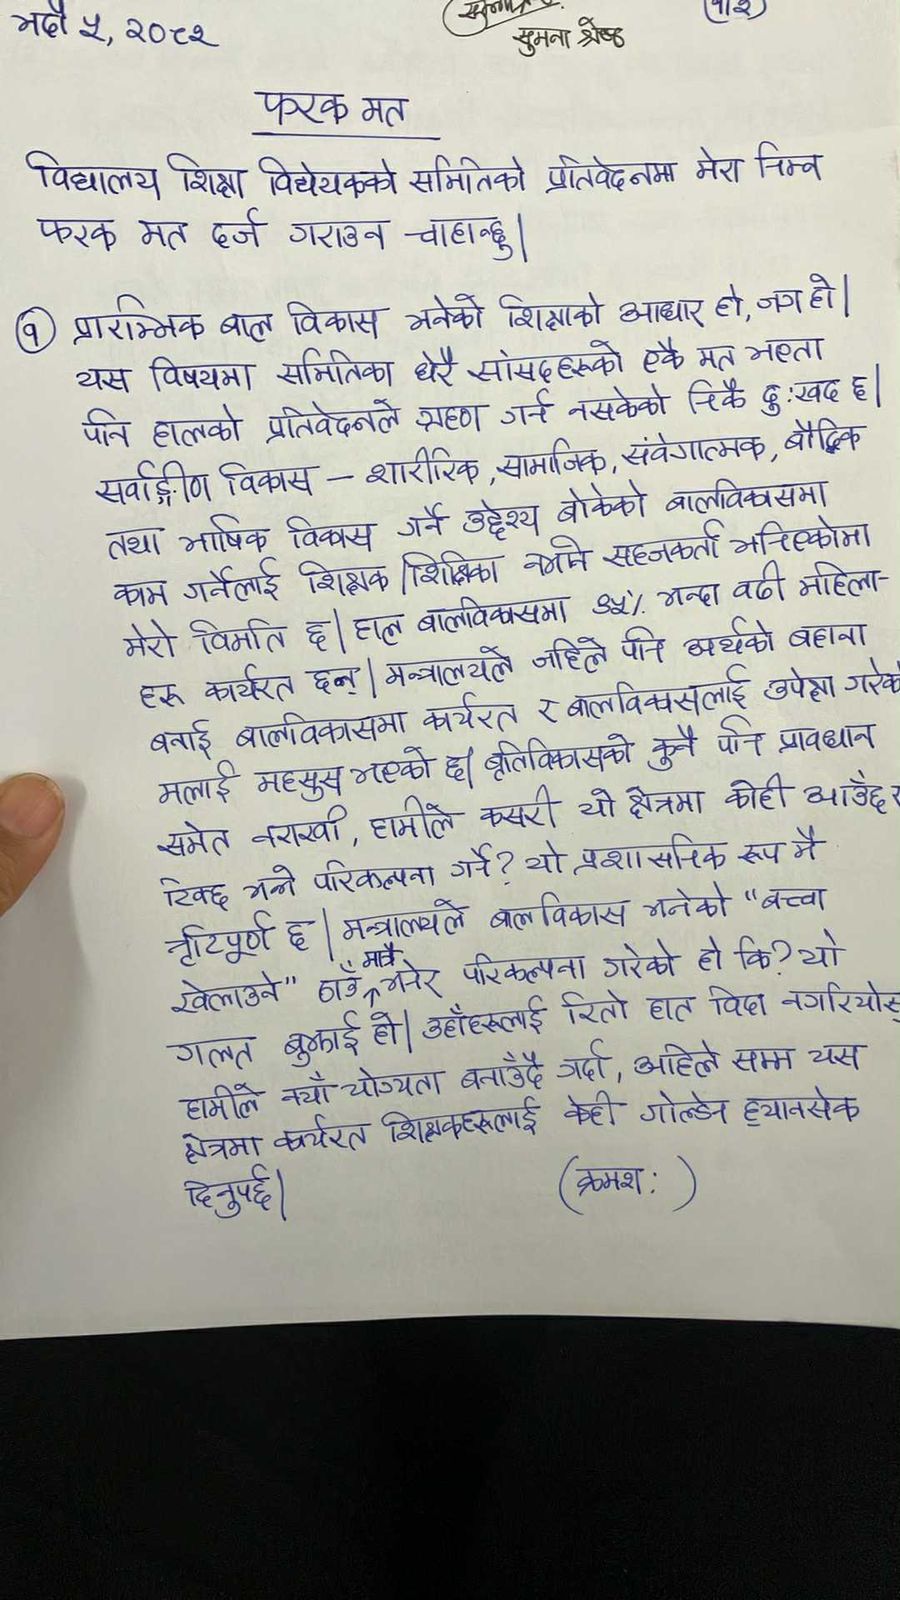 भदौ ५, २०८२
सुमना श्रेष्ठ
(१/२)
फरक मत
विद्यालय शिक्षा विधेयकको समितिको प्रतिवेदनमा मेरा निम्न
फरक मत दर्ज गराउन चाहान्छु।
१ प्रारम्भिक बाल विकास भनेको शिक्षाको आधार हो, जग हो।
यस विषयमा समितिका धेरै सांसदहरूको एकै मत भएता
पनि हालको प्रतिवेदनले ग्रहण गर्न नसकेको निकै दुःखद छ।
सर्वाङ्गीण विकास – शारीरिक, सामाजिक, संवेगात्मक, बौद्धिक
तथा भाषिक विकास गर्ने उद्देश्य बोकेको बालविकासमा
काम गर्नेलाई शिक्षक/शिक्षिका नभनि सहजकर्ता भनिएकोमा
मेरो विमति छ। हाल बालविकासमा ९५% भन्दा वढी महिला-
हरू कार्यरत छन्। मन्त्रालयले जहिले पनि अर्थको बहाना
बनाई बालविकासमा कार्यरत र बालविकासलाई उपेक्षा गरेको
मलाई महसुस भएको छ। बृतिविकासको कुनै पनि प्रावधान
समेत नराखी, हामीले कसरी यो क्षेत्रमा कोही आउँछ र
टिक्छ भन्ने परिकल्पना गर्ने? यो प्रशासनिक रूपमै
त्रृटिपूर्ण छ। मन्त्रालयले बालविकास भनेको "बच्चा
खेलाउने" ठाउँ मात्रै भनेर परिकल्पना गरेको हो कि? यो
गलत बुझाई हो। उहाँहरूलाई रित्तो हात विदा नगरियोस्
हामीले नयाँ योग्यता बनाउँदै गर्दा, अहिले सम्म यस
क्षेत्रमा कार्यरत शिक्षकहरूलाई केही गोल्डेन ह्यानसेक
दिनुपर्छ।
(क्रमश: )